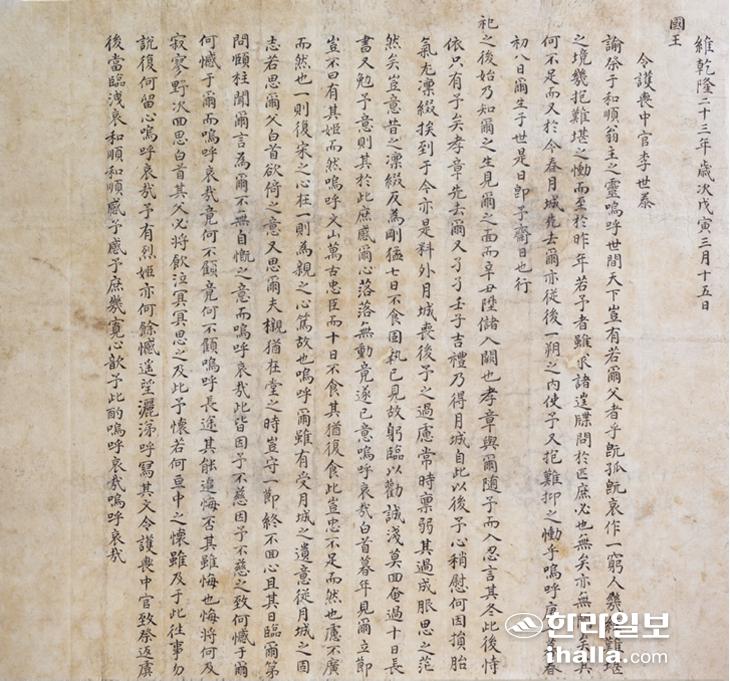 維乾隆二十三年歲次戊寅三月十五日
國王
令護喪中官李世泰
諭祭于和順翁主之靈嗚呼世間天下豈有若爾父者乎旣孤旣哀作一窮人幾經難堪
之境幾抱難堪之慟而至於昨年若予者雖求諸牒問於匹庶必也無矣亦無矣其
何不足而又於今春月城先去爾亦從後一朔之內使予又抱難抑之慟乎嗚呼庚暮春
初八日爾生于世是日卽予齋日也行
祀之後始乃知爾之生見爾之面而辛丑陞儲入闕也孝章與爾隨予而入忍言其冬此後恃
依只有予矣孝章先去爾又孑孑壬子吉禮乃得月城自此以後予心稍慰何因損胎
氣尪凜綴挨到于今亦是料外月城喪後予之過慮常時稟弱其過成服思之茫
然矣豈意昔之凜綴反爲剛猛七日不食固執已見故躬臨以勸誠淺莫回奄過十日長
書又勉予意則其於此庶感爾心落落無動竟遂已意嗚呼哀哉白首暮年見爾立節
豈不曰有其姬而然嗚呼文山萬古忠臣而十日不食其猶復食此豈忠不足而然也慮不廣
而然也一則復宋之心在一則爲親之心篤故也嗚呼爾雖有受月城之遺意從月城之固
志若思爾父白首欲倚之意又思爾夫櫬猶在堂之時豈守一節終不回心且其日臨爾第
問頤柱聞爾言爲爾不無自慨之意而嗚呼哀哉此皆因予不慈因予不慈之致何憾于爾
何憾于爾而嗚呼哀哉竟何不顧竟何不顧嗚呼長途其能追悔否其雖悔也悔將何及
寂寥野次回思白首其父必將飮泣冥冥思之及此予懷若何亘中之懷雖及于此往事勿
說復何留心嗚呼哀哉予有烈姬亦何餘憾遙望灑涕呼寫其文令護喪中官致祭返虞
後當臨淺哀和順和順感予感予庶幾寬心歆予此酌嗚呼哀哉嗚呼哀哉
한라일보
ihalla.com